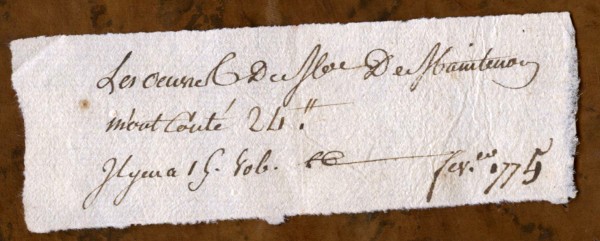 Les oeuvres De Mde De Maintenon
m'ont Couté 24 ^tt.
Il y en a 15. Vol. fevr. 1775